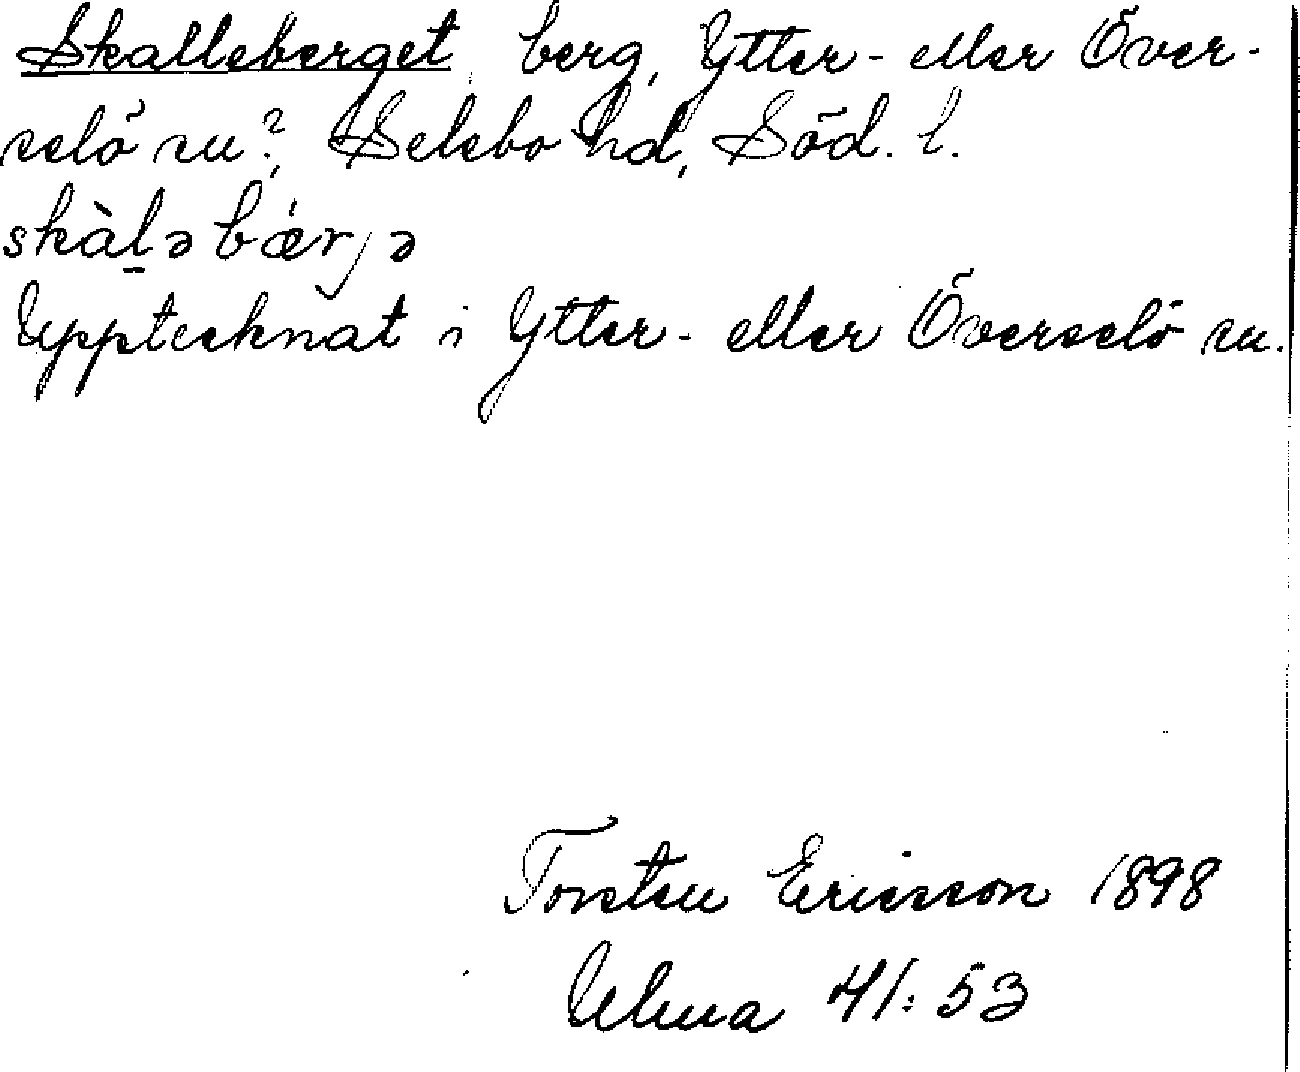 Skalleberget, berg, Ytter- eller Över-
selö sn?, Selebo hd, Söd. l.
skàl̠ə bǽrjə
Upptecknat i Ytter- eller Överselö sn.
Torsten Ericsson 1898
Ulma 41:53